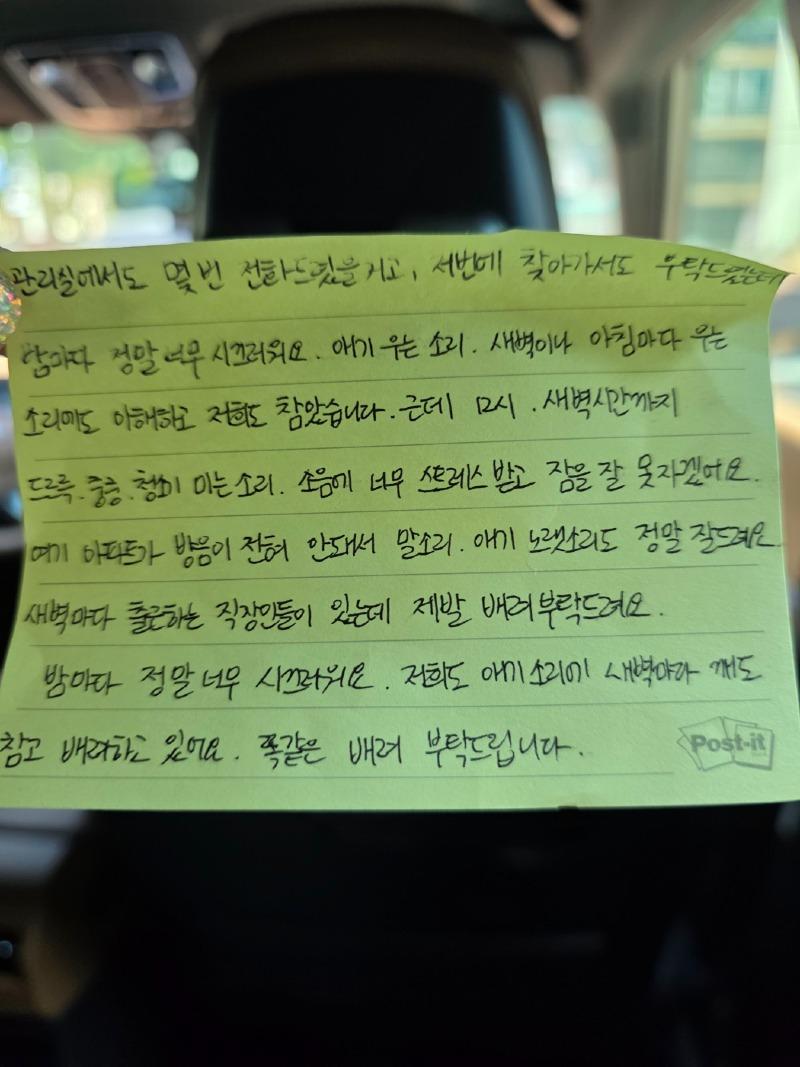 관리실에서도 몇번 전화드렸을거고, 세번에 찾아가서도 부탁드렸는데
밤마다 정말 너무 시끄러워요. 애기 우는 소리. 새벽이나 아침마다 우는
소리에도 이해하고 저희도 참았습니다. 근데 12시. 새벽시간까지
드르륵. 쿵쿵. 청소기 미는 소리. 소음에 너무 스트레스 받고 잠을 잘 못자겠어요.
여기 아파트가 방음이 전혀 안돼서 말소리. 애기 노랫소리도 정말 잘들려요
새벽마다 출근하는 직장인들이 있는데 제발 배려부탁드려요.
밤마다 정말 너무 시끄러워요. 저희도 애기소리에 새벽마다 깨도
참고 배려하고 있어요. 똑같은 배려 부탁드립니다.
Post-it